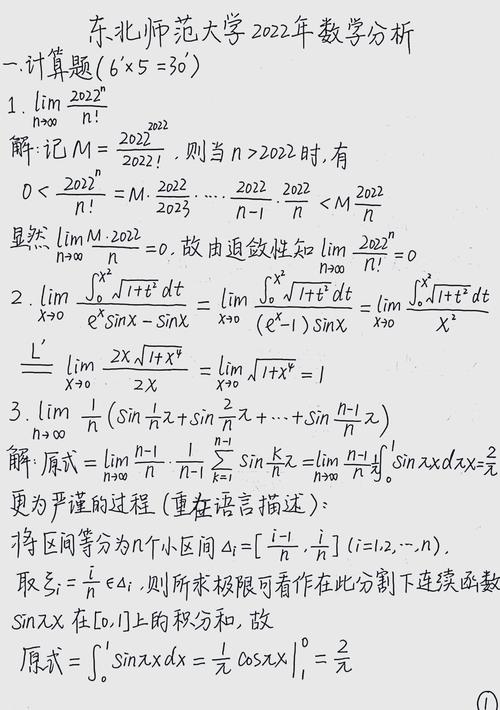 东北师范大学2022年数学分析
一.计算题(6'×5=30')
1. lim_{n→∞} 2022^n/n!
解:记M = 2022^2022/2022!, 则当n>2022时,有
0 < 2022^n/n! = M·2022/2023·…·2022/(n-1)·2022/n < M 2022/n
显然 lim_{n→∞} M·2022/n = 0, 故由迫敛性知 lim_{n→∞} 2022^n/n! = 0
2. lim_{x→0} ∫_0^{x^2} √(1+t^2) dt/(e^x sinx - sinx) = lim_{x→0} ∫_0^{x^2} √(1+t^2) dt/((e^x-1) sinx) = lim_{x→0} ∫_0^{x^2} √(1+t^2) dt/x^2
L'= lim_{x→0} 2x√(1+x^4)/2x = lim_{x→0} √(1+x^4) = 1
3. lim_{n→∞} 1/n (sin 1/n π + sin 2/n π + … + sin (n-1)/n π)
解:原式 = lim_{n→∞} (n-1)/n · 1/(n-1) ∑_{k=1}^{n-1} sin k/n π = lim_{n→∞} (n-1)/n ∫_0^1 sinπx dπx = 2/π
更为严谨的过程(重在语言描述):
将区间等分为n个小区间Δi=[(i-1)/n, i/n] (i=1,2,…,n),
取ξi = i/n ∈Δi, 则所求极限可看作在此分割下连续函数
sinπx 在[0,1]上的积分和,故
原式 = ∫_0^1 sinπx dx = 1/π cosπx |_1^0 = 2/π
①